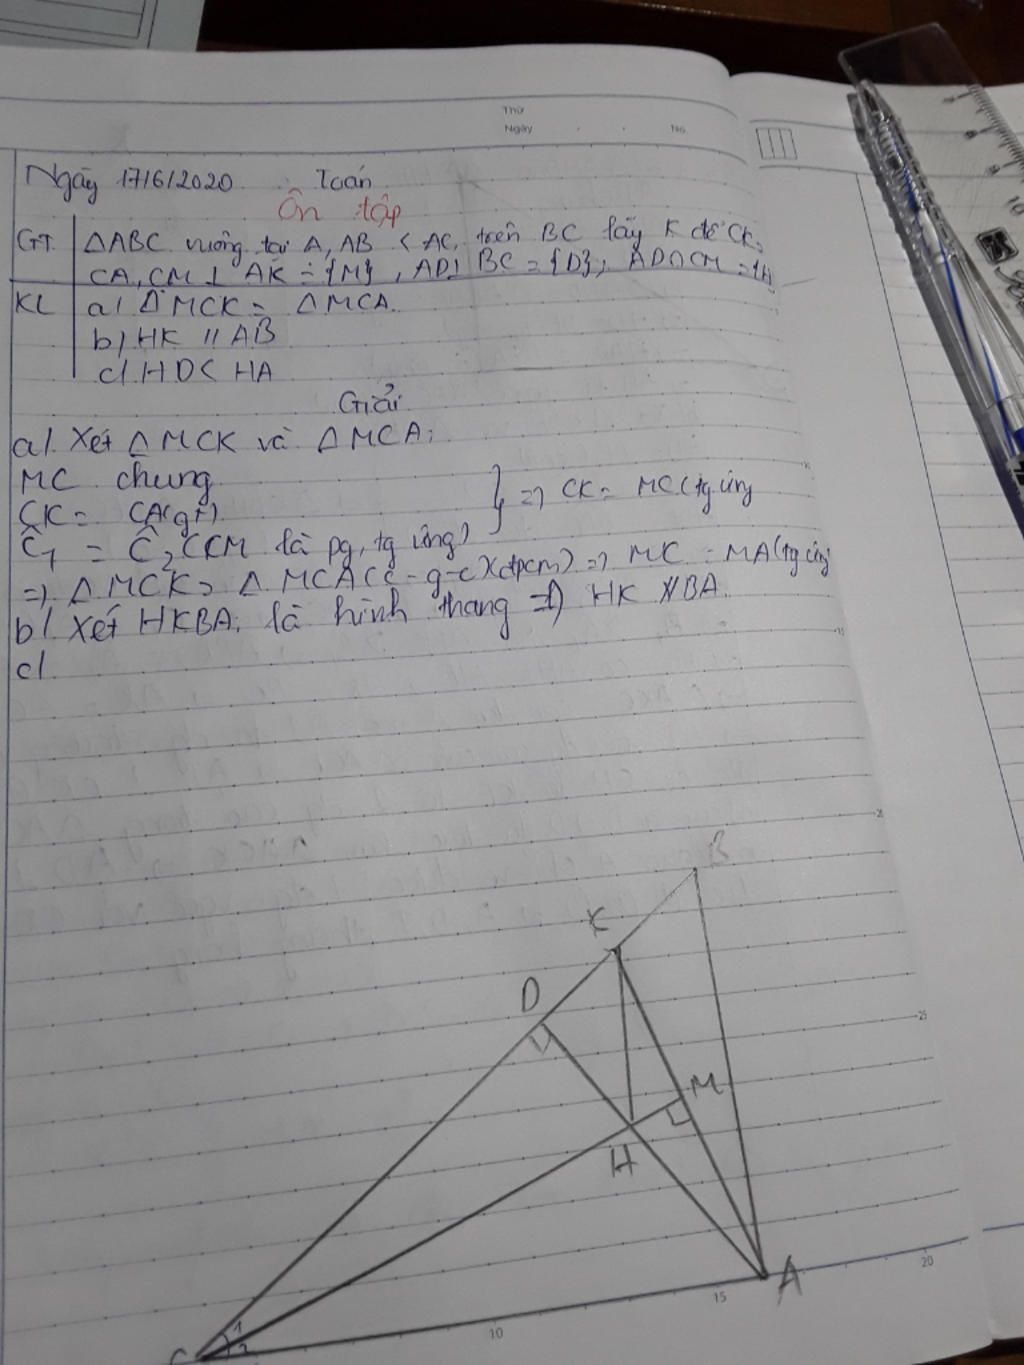 Thứ
Ngày No.
Ngày 17/6/2020 Toán
Ôn tập
GT ΔABC vuông tại A, AB < AC, trên BC lấy K để CK=
CA, CM ⊥ AK = {M}, AD⊥ BC = {D}; AD∩CM = {H}
KL a/ ΔMCK = ΔMCA.
b/ HK // AB
c/ HD < HA
Giải
a/. Xét ΔMCK và ΔMCA:
MC chung
CK = CA(gt) } => CK = MC(tg ứng
Ĉ1 = Ĉ2 (CM là pg, tg ứng)
=> ΔMCK = ΔMCA(c-g-c)(đpcm) => MK = MA(tg ứng
b/. Xét HKBA: là hình thang => HK // BA.
c/
B
K
D
M
H
A
C 1
2
10 15 20
15
20
25
9
10